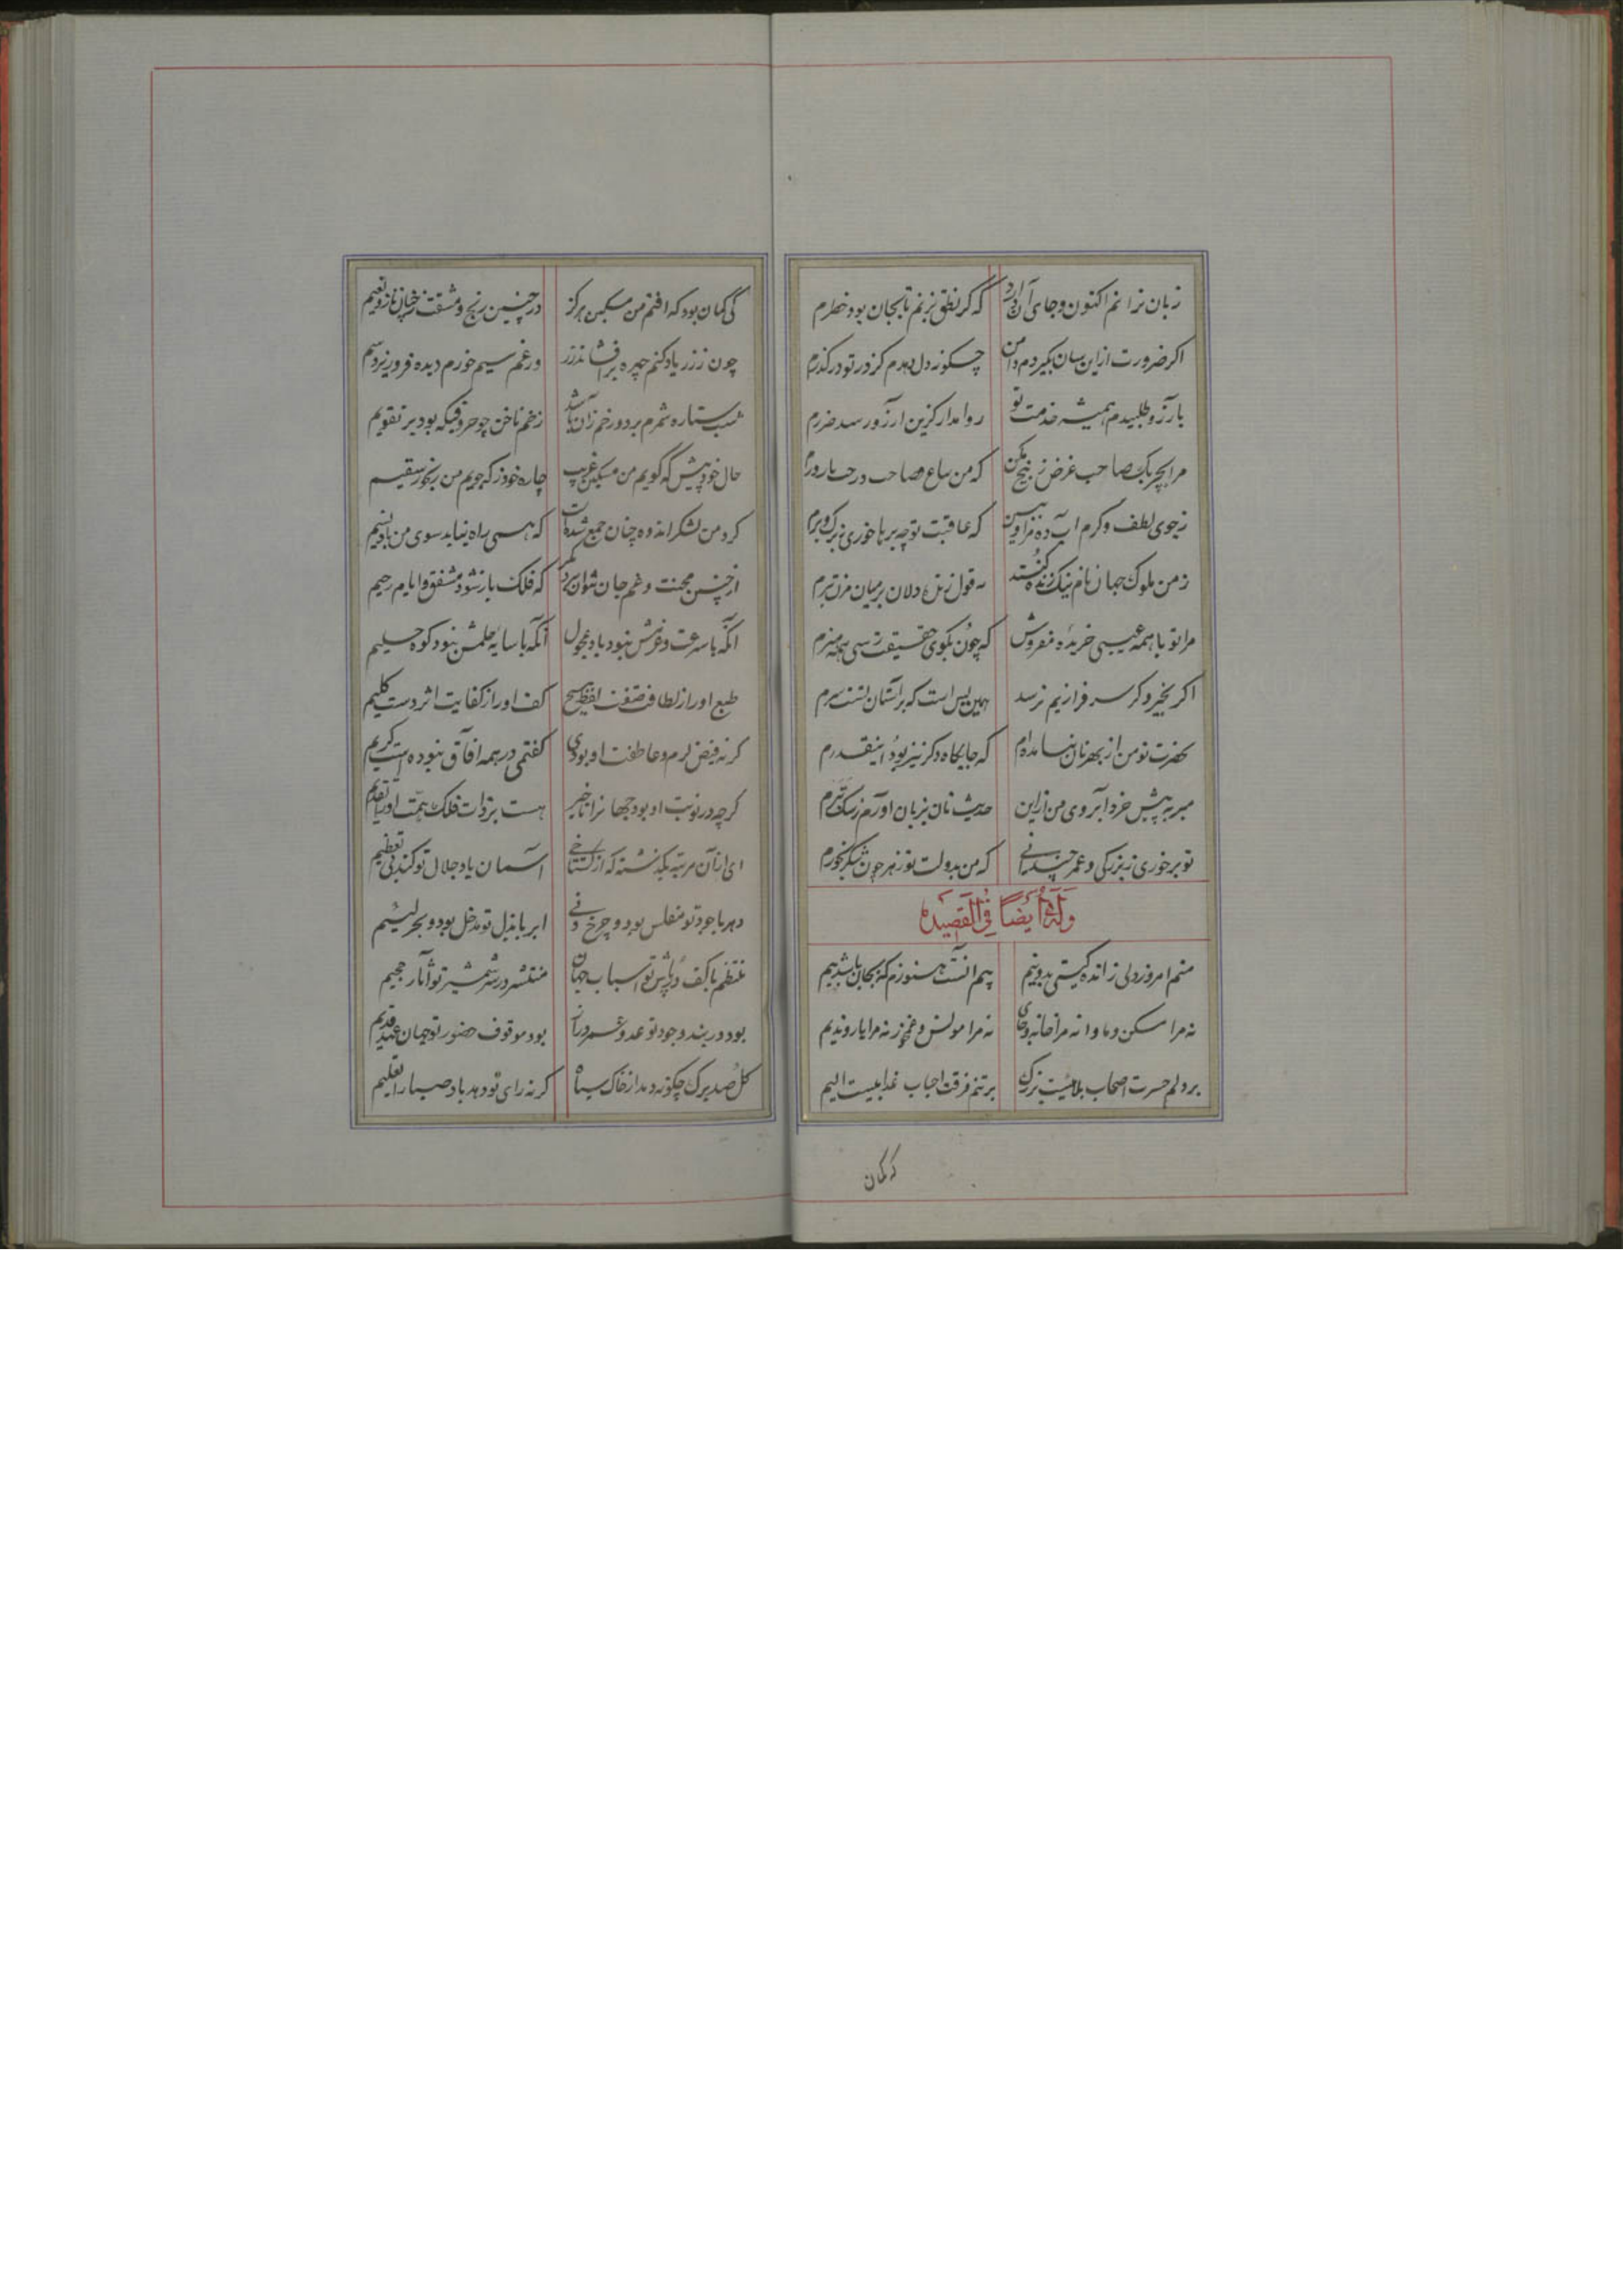 زبان نرانم اکنون و جای آن دارد که گر نطق بزنم تا بجان بود خطرم
اکر ضرورت ازاین سان بگیردم دامن چگونه دل دهدم کز در تو درگذرم
بآرزو طلبیدم همیشه خدمت تو روا مدار کزین آرزو رسد ضررم
مرا بحر یک صاحب غرض ز بیخ مکن
ز جوی لطف و کرم آب ده مرا و ببین که عاقبت تو چه بر ها خوری ز برگ و برم
ز من ملوک جهان نام نیک زنده کنند نه قول زنده دلان بر میان
مرا تو با همه عیبی خریدهٔ مفروش که چون بکوی حقیقت رسی همه هنرم
اکر بخیر و کرم سرفرازیم نرسد همین بس است که بر آستان تست سرم
بحضرت تو من از بهر نان نیامده‌ام که جایگاه دکر نیز بود اینقدرم
مبر به پیش خرد آبروی من زاین حدیث نان بزبان آورم ز سک بترم
تو برخوری ز بزرگی و عمر چندانی که من بدولت تو زهر چون شکر بخورم
وله ایضاً فی القصیده
منم امروز دلی زانده گیتی بدو نیم بیم آنست هنوزم که بجان باشد بیم
نه مرا مسکن و ماوا نه مرا خانه و جای نه مرا مونس و غمخور نه مرا یار و ندیم
بر دلم حسرت اصحاب بلائیست بزرگ بر تنم فرقت احباب عذابیست الیم
کی گمان
کی گمان بود که افتم من مسکین هرگز در چنین رنج و مشقت ز چنان ناز و نعیم
چون ز زر یاد کنم چهره برافشاند زر ور غم سیم خورم دیده فرو ریزد سیم
شب ستاره شمرم بر دو رخم زان باشد زخم ناخن چو حروفیکه بود بر تقویم
حال خود پیش که گویم من مسکین غریب چاره خود ز که جویم من رنجور سقیم
گرد من لشکر اندوه چنان جمع شده است که همی راه نیابد سوی من باد نسیم
از چنین محنت و غم جان نتوان برد مگر که فلک باز شود مشفق و ایام رحیم
آنکه با سرعت عزمش نبود باد عجول آنکه با سایه حلمش نبود کوه حلیم
طبع او را ز لطافت صفت لفظ مسیح کف او را ز کفایت اثر دست کلیم
گر نه فیض کرم و عاطفت او بودی گفتمی در همه آفاق نبوده است کریم
گر چه در نوبت او بود جهانرا تاخیر هست بر ذات فلک همت او را تقدیم
ای از آن مرتبه بگذشته که از گستاخی آسمان یاد جلال تو کند بی تعظیم
دهر با جود تو مفلس بود و چرخ دنی ابر با بذل تو مدخل بود و بحر لئیم
منتظم با کف در پاش تو اسباب جهان منتشر در سر شمشیر تو آثار جحیم
بود در بند وجود تو عدو عمر دراز بود موقوف حضور تو جهان عهد قدیم
گل صد برگ چگونه دمد از خاک سیاه گر نه رای تو دهد باد صبا را تعلیم